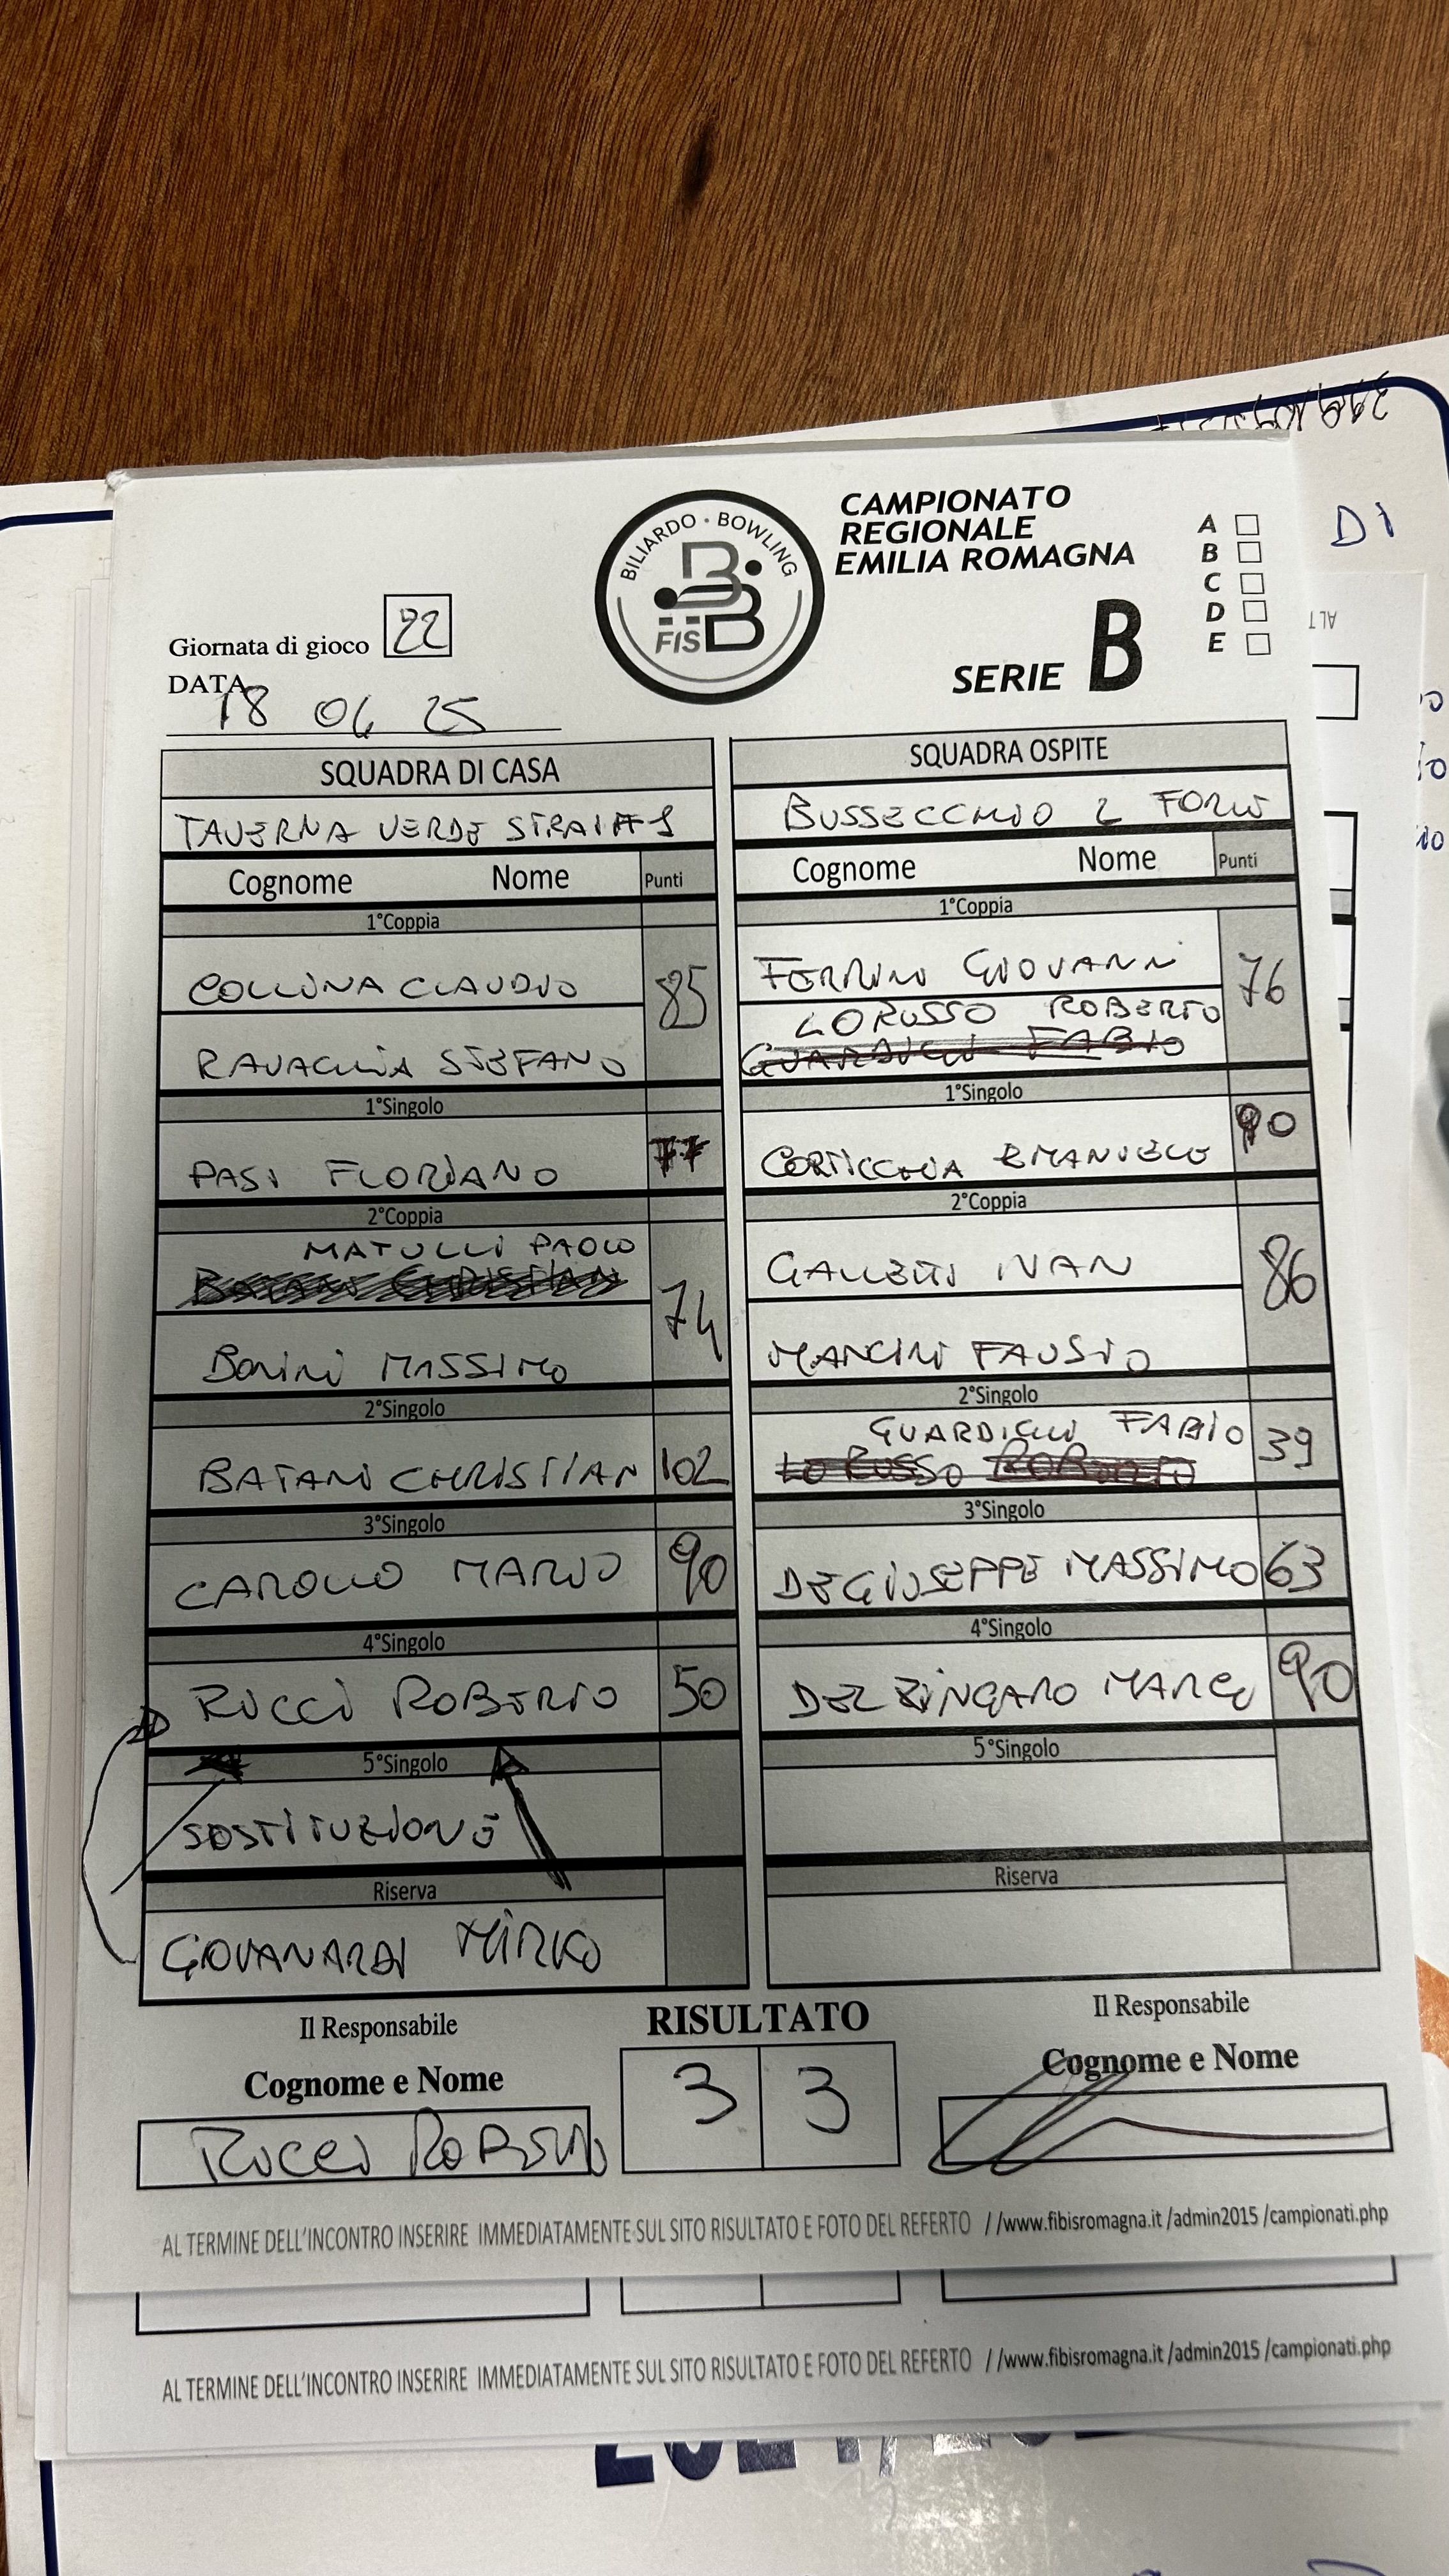 BILIARDO · BOWLING
FISBB
CAMPIONATO
REGIONALE
EMILIA ROMAGNA
SERIE B
A
B
C
D
E
DI
Giornata di gioco 22
DATA
18 04 25
SQUADRA DI CASA
TAVERNA VERDE
Cognome Nome Punti
1°Coppia
COLLINA CLAUDIO 85
RAVAGLIA STEFANO
1°Singolo
PASI FLORIANO 77
2°Coppia
MATULLI PAOLO
BATANI CHRISTIAN
74
BONINI MASSIMO
2°Singolo
BATANI CHRISTIAN 102
3°Singolo
CAROLLO MARIO 90
4°Singolo
RICCI ROBERTO 50
5°Singolo
SOSTITUZIONE
Riserva
GOVANARDI MIRKO
Il Responsabile
Cognome e Nome
RICCI ROBERTO
SQUADRA OSPITE
BUSSECCHIO 2 FORLI
Cognome Nome Punti
1°Coppia
FERRINI GIOVANNI 76
LORUSSO ROBERTO
GUARDIGLI FABIO
1°Singolo
CORTICCHIA EMANUELE 90
2°Coppia
GALLETTI IVAN 86
MANCINI FAUSTO
2°Singolo
GUARDIGLI FABIO 39
LO RUSSO ROBERTO
3°Singolo
DEGIUSEPPE MASSIMO 63
4°Singolo
DEL ZINGARO MARCO 90
5°Singolo
Riserva
Il Responsabile
Cognome e Nome
RISULTATO
3 3
AL TERMINE DELL'INCONTRO INSERIRE IMMEDIATAMENTE SUL SITO RISULTATO E FOTO DEL REFERTO //www.fibisromagna.it /admin2015 /campionati.php
AL TERMINE DELL'INCONTRO INSERIRE IMMEDIATAMENTE SUL SITO RISULTATO E FOTO DEL REFERTO //www.fibisromagna.it /admin2015 /campionati.php